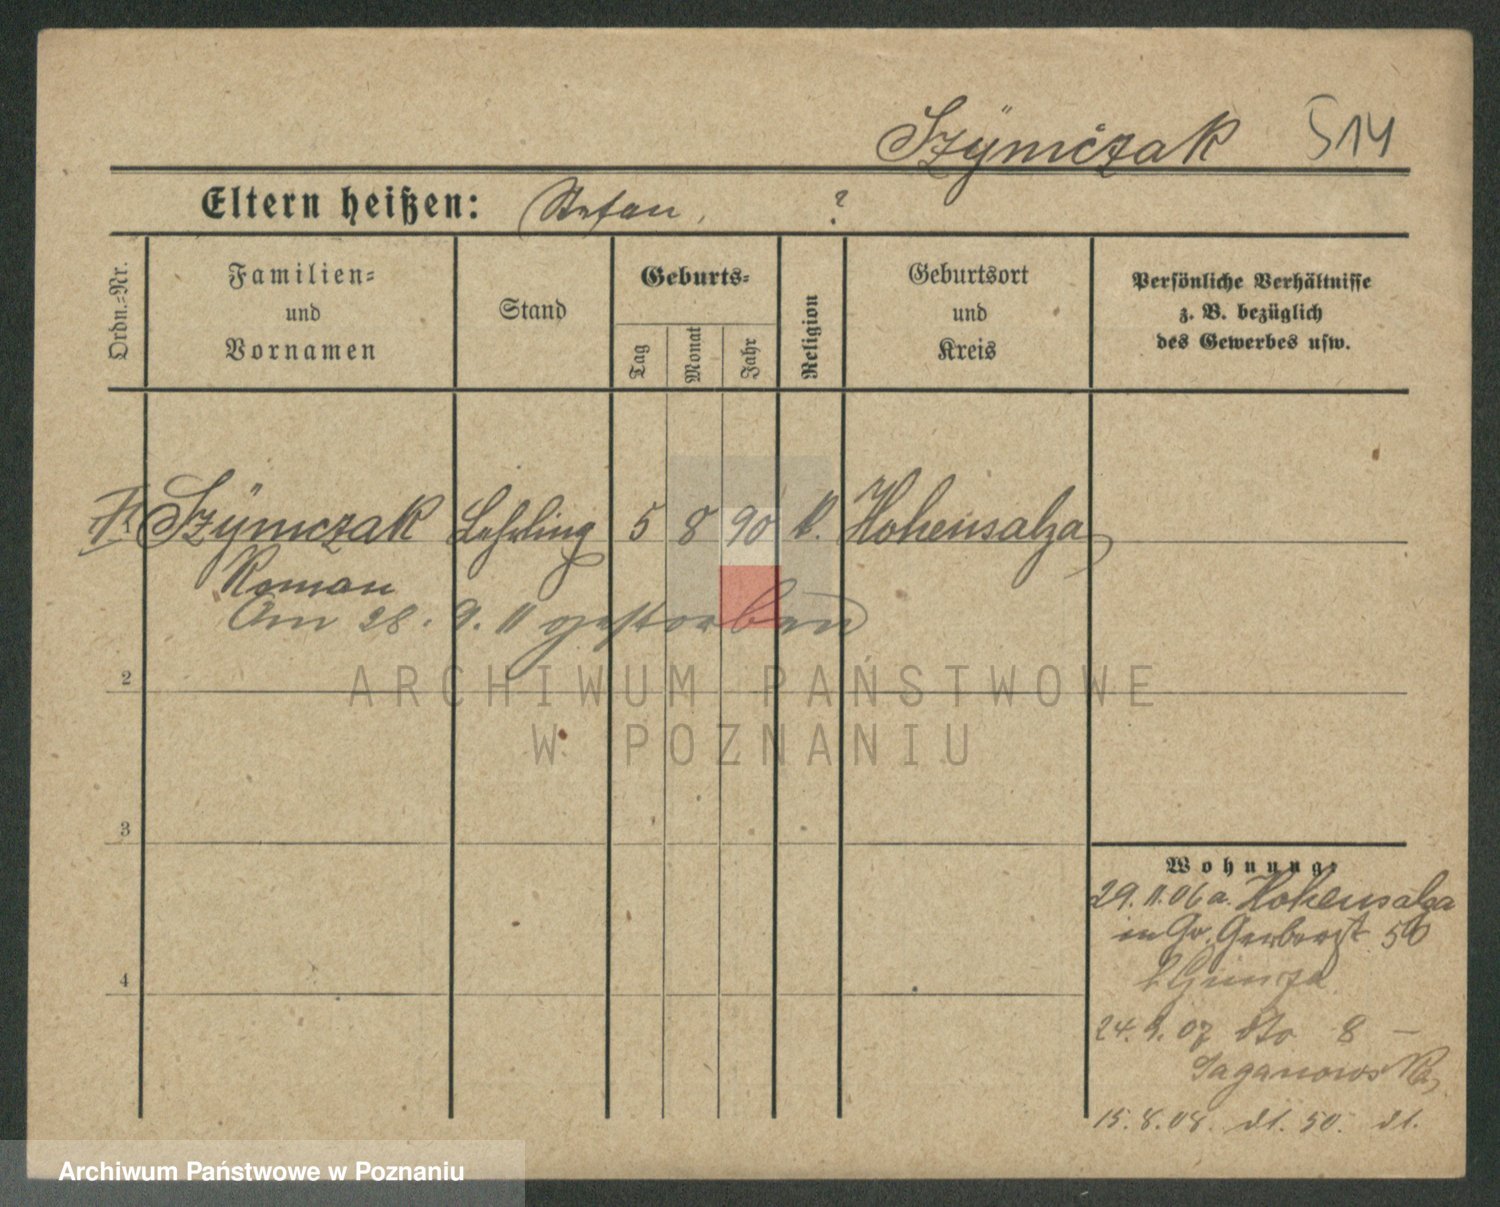 Szÿmczak 514
Eltern heißen: Stefan, ?
Ordn.-Nr.
Familien- und Vornamen
Stand
Geburts-
Tag
Monat
Jahr
Religion
Geburtsort und Kreis
Persönliche Verhältnisse
z. B. bezüglich
des Gewerbes usw.
1. Szÿmczak Lehrling 5 8 90 k. Hohensalza
Roman
Am 28. 9. 11 gestorben
2
ARCHIWUM PAŃSTWOWE
W POZNANIU
3
Wohnung:
29. 11. 06 a. Hohensalza
in Gr. Gerberst 50
4
24. 9. 07 dto 8 –
Saganowska
15. 8. 08. dt. 50. dt.
Archiwum Państwowe w Poznaniu